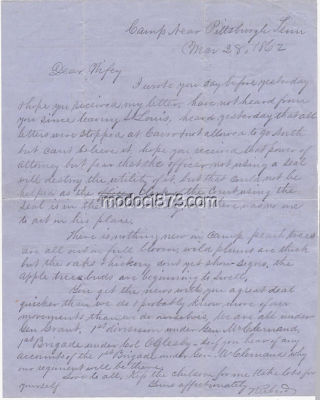 Camp Near Pittsburgh Tenn
Mar 28, 1862
Dear Wifey
I wrote you day before yesterday
I hope you received my letter, have not heard from
you since leaving St Louis, heard yesterday that all
letters were stopped at Cairo but allowed to go South
but cant believe it, hope you received that power of
attorney but fear that the officer not using a seal
will destroy the utility of it, but that could not be
helped as the
seal is in the
modoc1873.com
to act in his place.
There is nothing new in Camp, peach trees
are all out in full bloom, wild plums are thick
but the oaks & hickory dont yet show signs, the
apple tree buds are beginning to swell.
You get the news with you a great deal
quicker than we do & probably know more of our
movements than we do ourselves, we are all under
Gen Grant, 1st division under Gen McClernand,
1st Brigade under Col Oglesby so if you hear of any
account of the 1st Brigade under Gen McClernand why
our regiment will be there.
Love to all, Kiss the children for me & take lots for
yourself
Yours affectionately